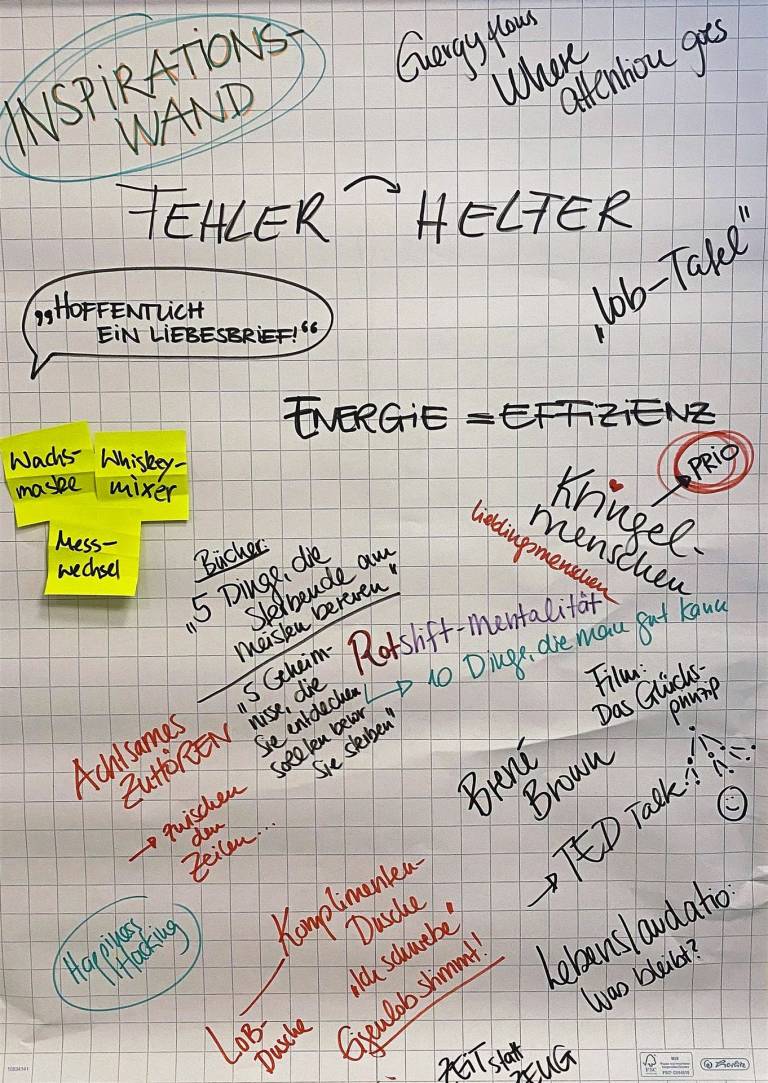 INSPIRATIONS-
WAND
Energy flows
Where
attention goes
FEHLER HELFER
„Lob-Tafel"
„HOFFENTLICH
EIN LIEBESBRIEF!“
ENERGiE = EFFiZiENZ
PRIO
Wachs-
maske
Whiskey-
mixer
Mess-
wechsel
Kringel-
menschen
Lieblingsmenschen
Bücher:
„5 Dinge, die
Sterbende am
meisten bereuen"
Rotstift-Mentalität
10 Dinge, die man gut kann
„5 Geheim-
nisse, die
Sie entdecken
sollten bevor
Sie sterben"
Film:
Das Glücks-
prinzip
Achtsames
ZUHÖREN
→ zwischen
den
Zeilen...
Brené
Brown
→ TED Talk!!
Happiness
Hacking
Komplimenten-
Dusche
„Ich schwebe"
Eigenlob stimmt!
LOB-
Dusche
Lebenslaudatio:
Was bleibt?
ZEiT statt
ZEUG
FSC
MIX